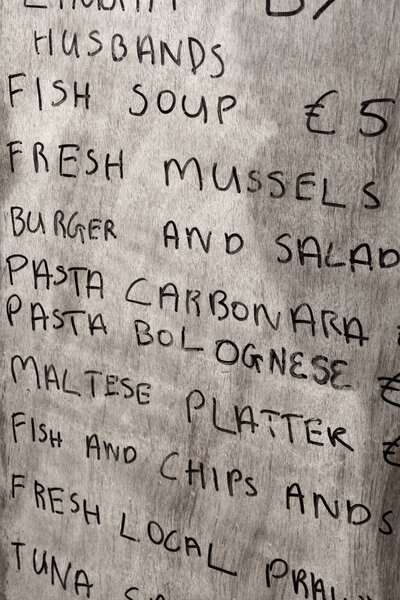 HUSBANDS
FISH SOUP €5
FRESH MUSSELS
BURGER AND SALAD
PASTA CARBONARA
PASTA BOLOGNESE €
MALTESE PLATTER €
FISH AND CHIPS AND S
FRESH LOCAL PRAW
TUNA